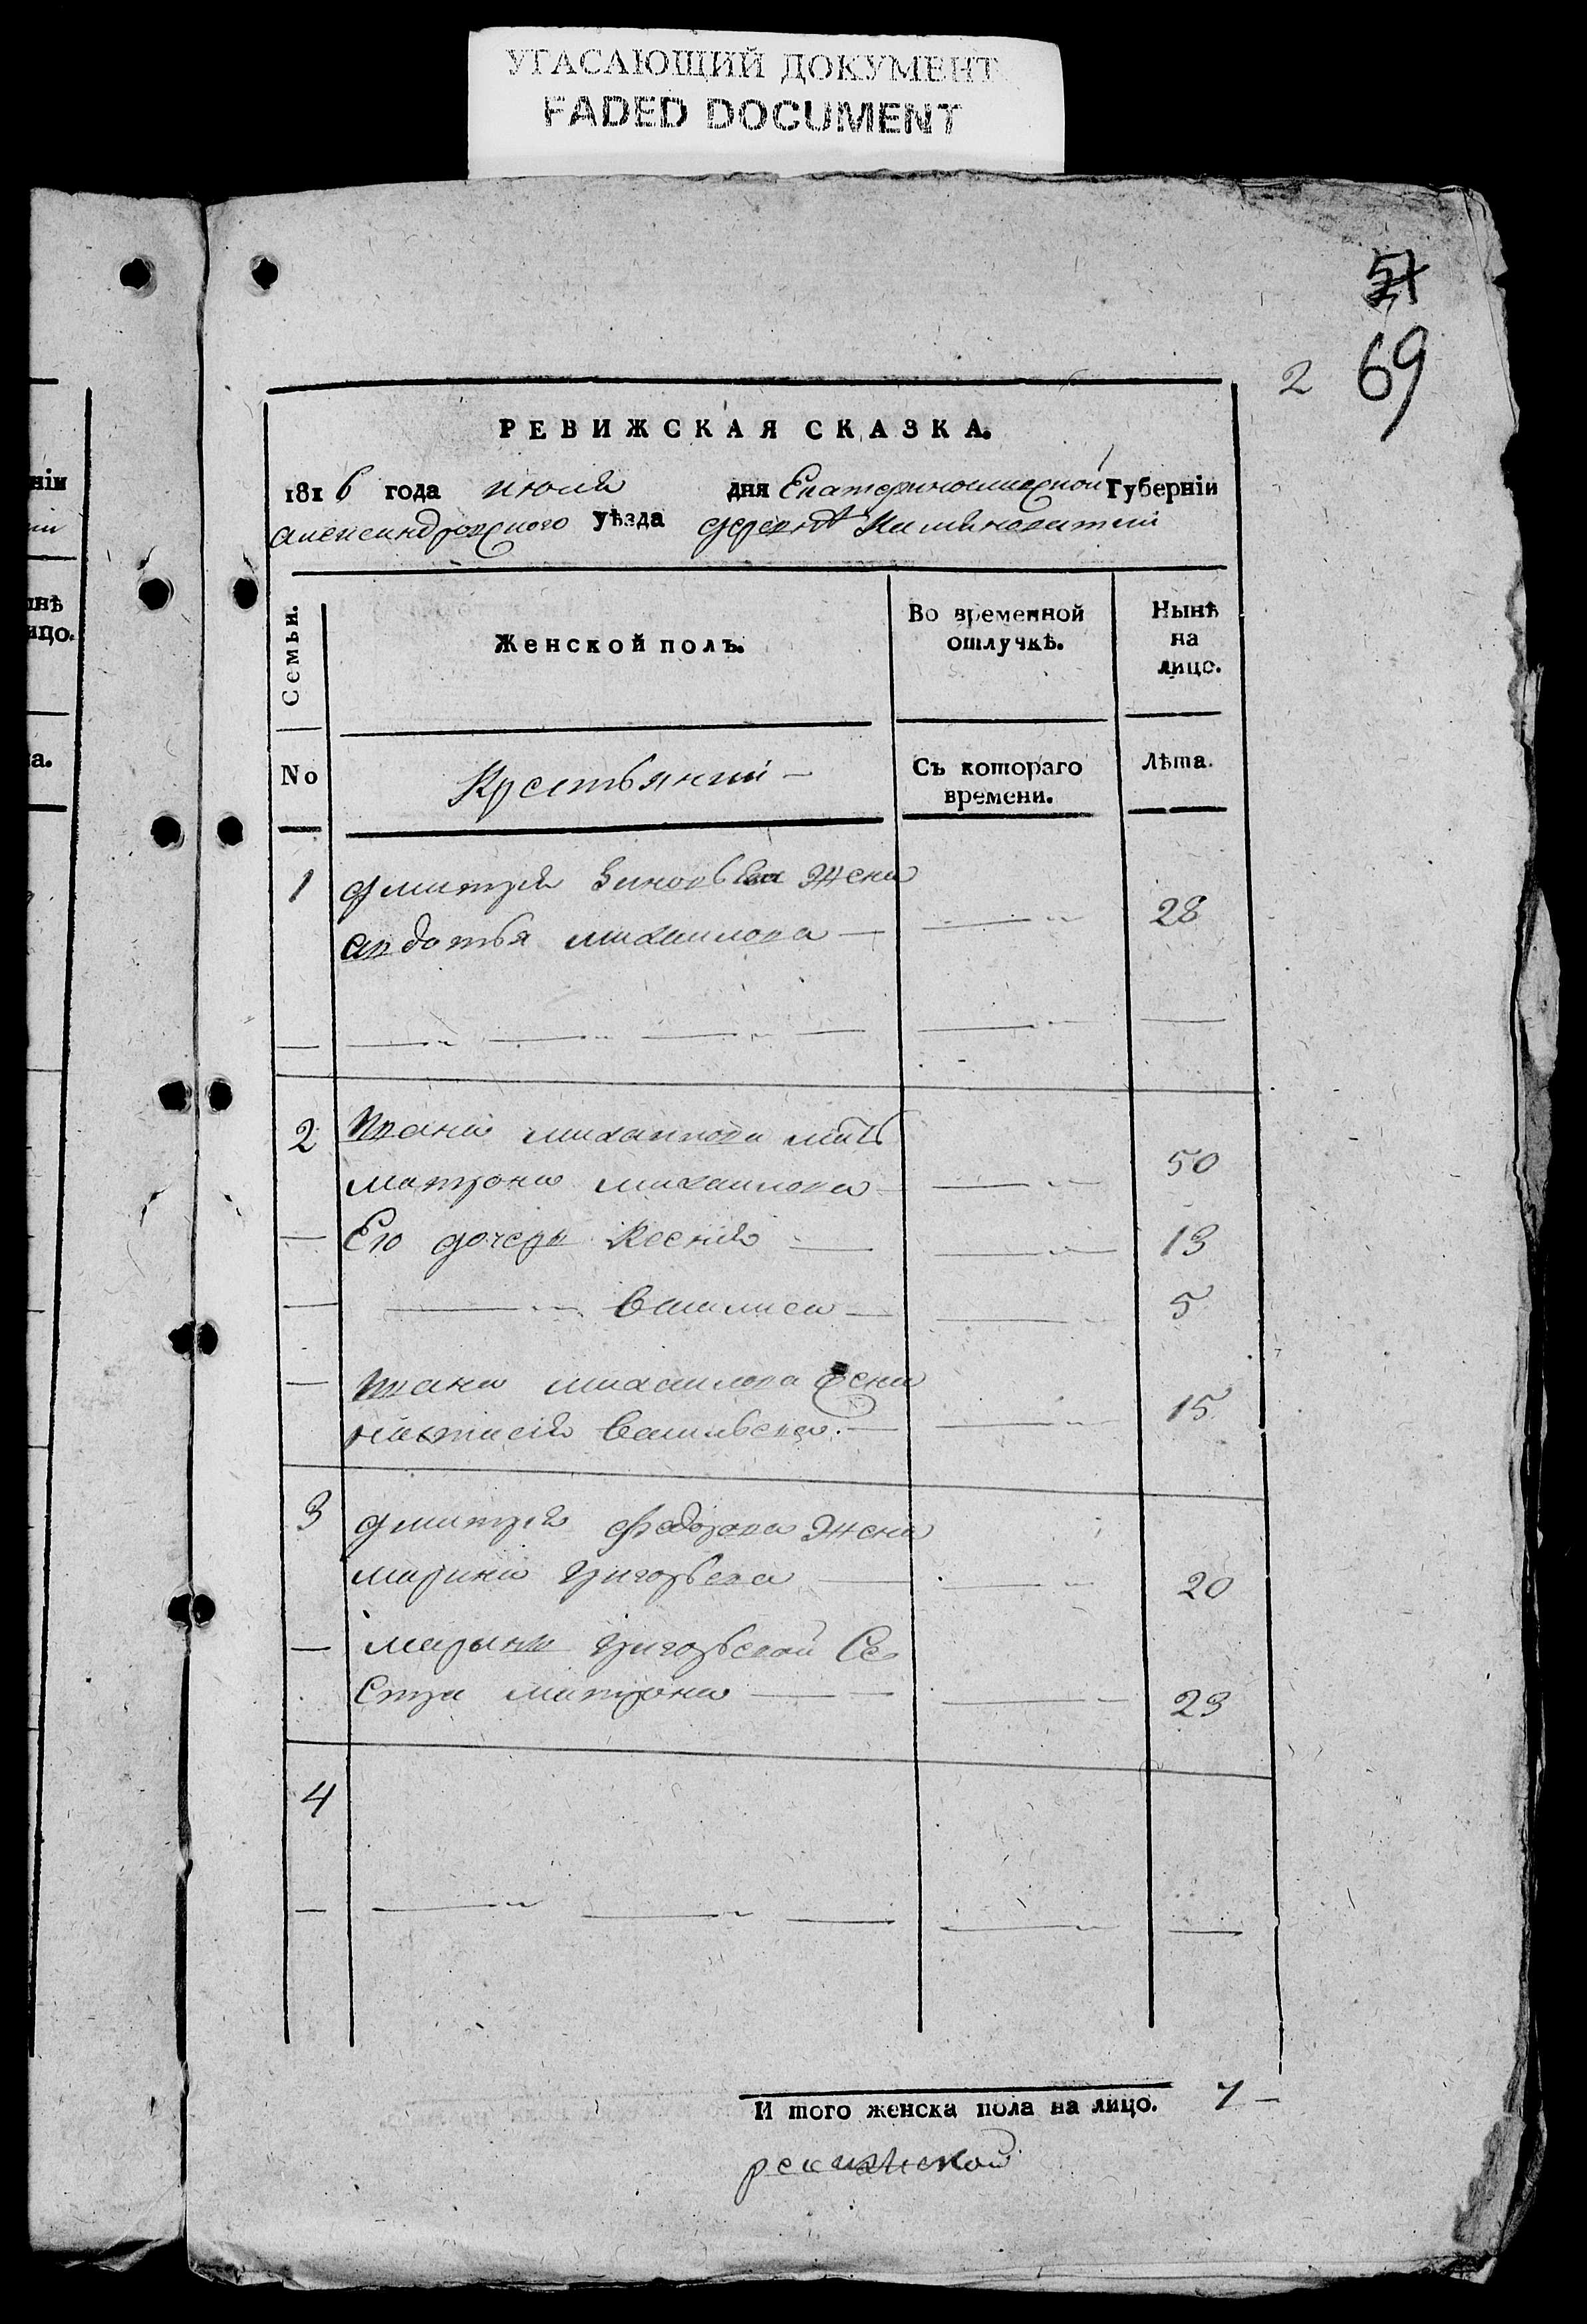 УГАСАЮЩИЙ ДОКУМЕНТ
FADED DOCUMENT
51
2 69
РЕВИЖСКАЯ СКАЗКА.
1816 года июля дня Екатеринославской Губерніи
александровского уѣзда деревнѣ
Семьи.
Женской полъ.
Во временной
отлучкѣ.
Нынѣ
на
лицо.
No
Крестьянии
Съ котораго
времени.
Лѣта.
1 дмитрея Зиновьева Жена
авдотья михаилова 28
2 Ивана михаилова мать
матрона михаилова 50
Его дочеры Ксения 13
василиса 5
Ивана михаилова жена
настасия васильева 15
3 дмитрея федорова Жена
марина григорьева 20
марины григорьевой Се
стра матрона 23
4
И того женска пола на лицо. 7
ревижской
нѣ
ицо.
а.